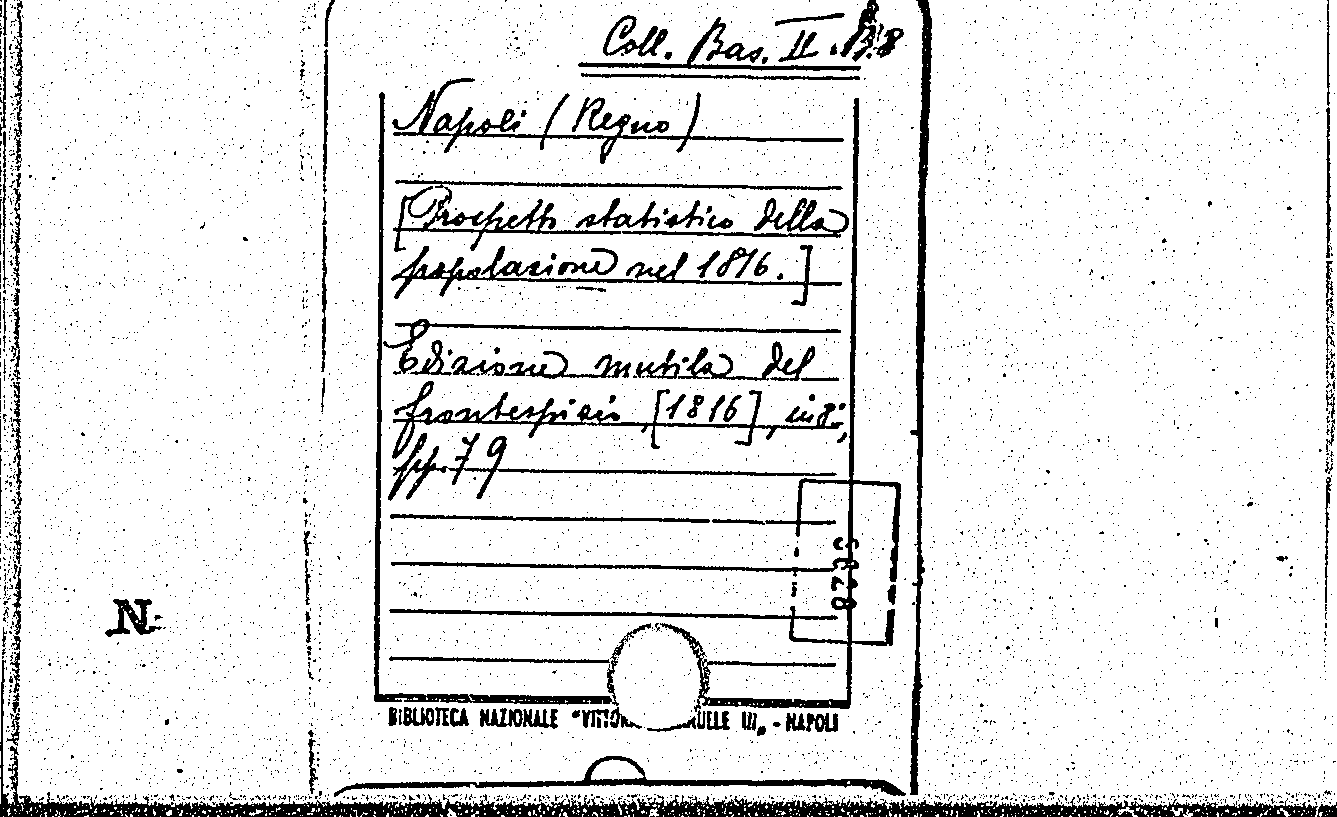 Coll. Bas. II.
Napoli (Regno)
[Prospetto statistico della
popolazione nel 1816.]
Edizione mutila del
frontespizio, [1816], in 8;
pp. 79
N.
BIBLIOTECA NAZIONALE "VITTOR UELE III„ - NAPOLI